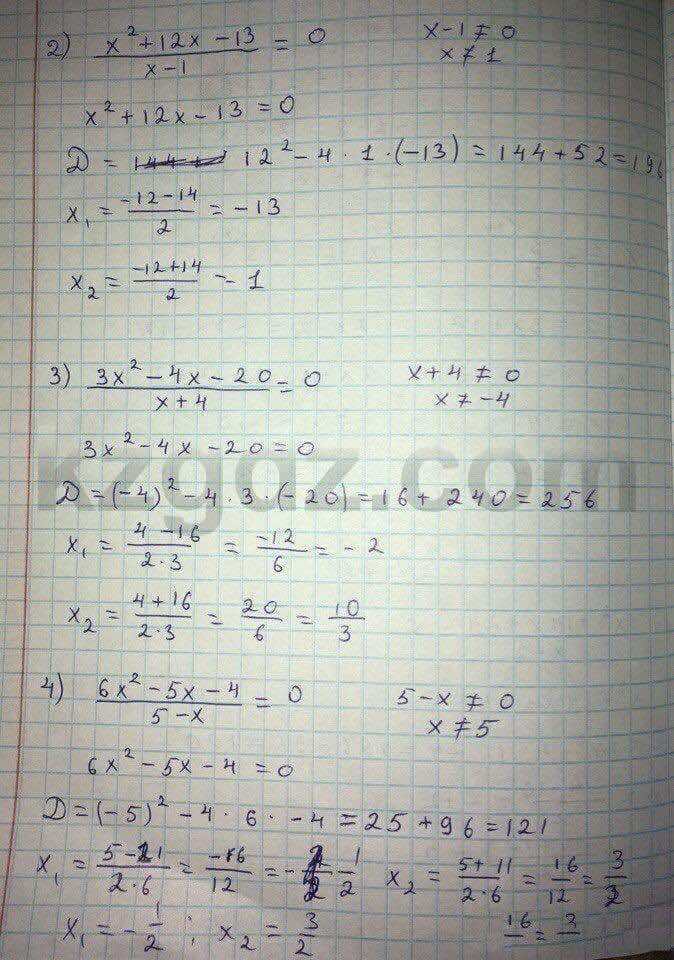 2) (x² + 12x - 13)/(x - 1) = 0 x - 1 ≠ 0
x ≠ 1
x² + 12x - 13 = 0
D = 12² - 4 · 1 · (-13) = 144 + 52 = 196
x₁ = (-12 - 14)/2 = -13
x₂ = (-12 + 14)/2 = 1
3) (3x² - 4x - 20)/(x + 4) = 0 x + 4 ≠ 0
x ≠ -4
3x² - 4x - 20 = 0
kzgdz.com
D = (-4)² - 4 · 3 · (-20) = 16 + 240 = 256
x₁ = (4 - 16)/(2 · 3) = -12/6 = -2
x₂ = (4 + 16)/(2 · 3) = 20/6 = 10/3
4) (6x² - 5x - 4)/(5 - x) = 0 5 - x ≠ 0
x ≠ 5
6x² - 5x - 4 = 0
D = (-5)² - 4 · 6 · -4 = 25 + 96 = 121
x₁ = (5 - 11)/(2 · 6) = -6/12 = -1/2 x₂ = (5 + 11)/(2 · 6) = 16/12 = 3/2
x₁ = -1/2 ; x₂ = 3/2 16/ = 3/